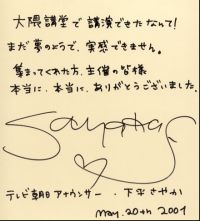 大隈講堂で講演できたなんて!
まだ夢のようで、実感できません。
集まってくれた方、主催の皆様
本当に、本当に、ありがとうございました。
Sayaka
テレビ朝日アナウンサー・下平さやか
May. 20th 2001